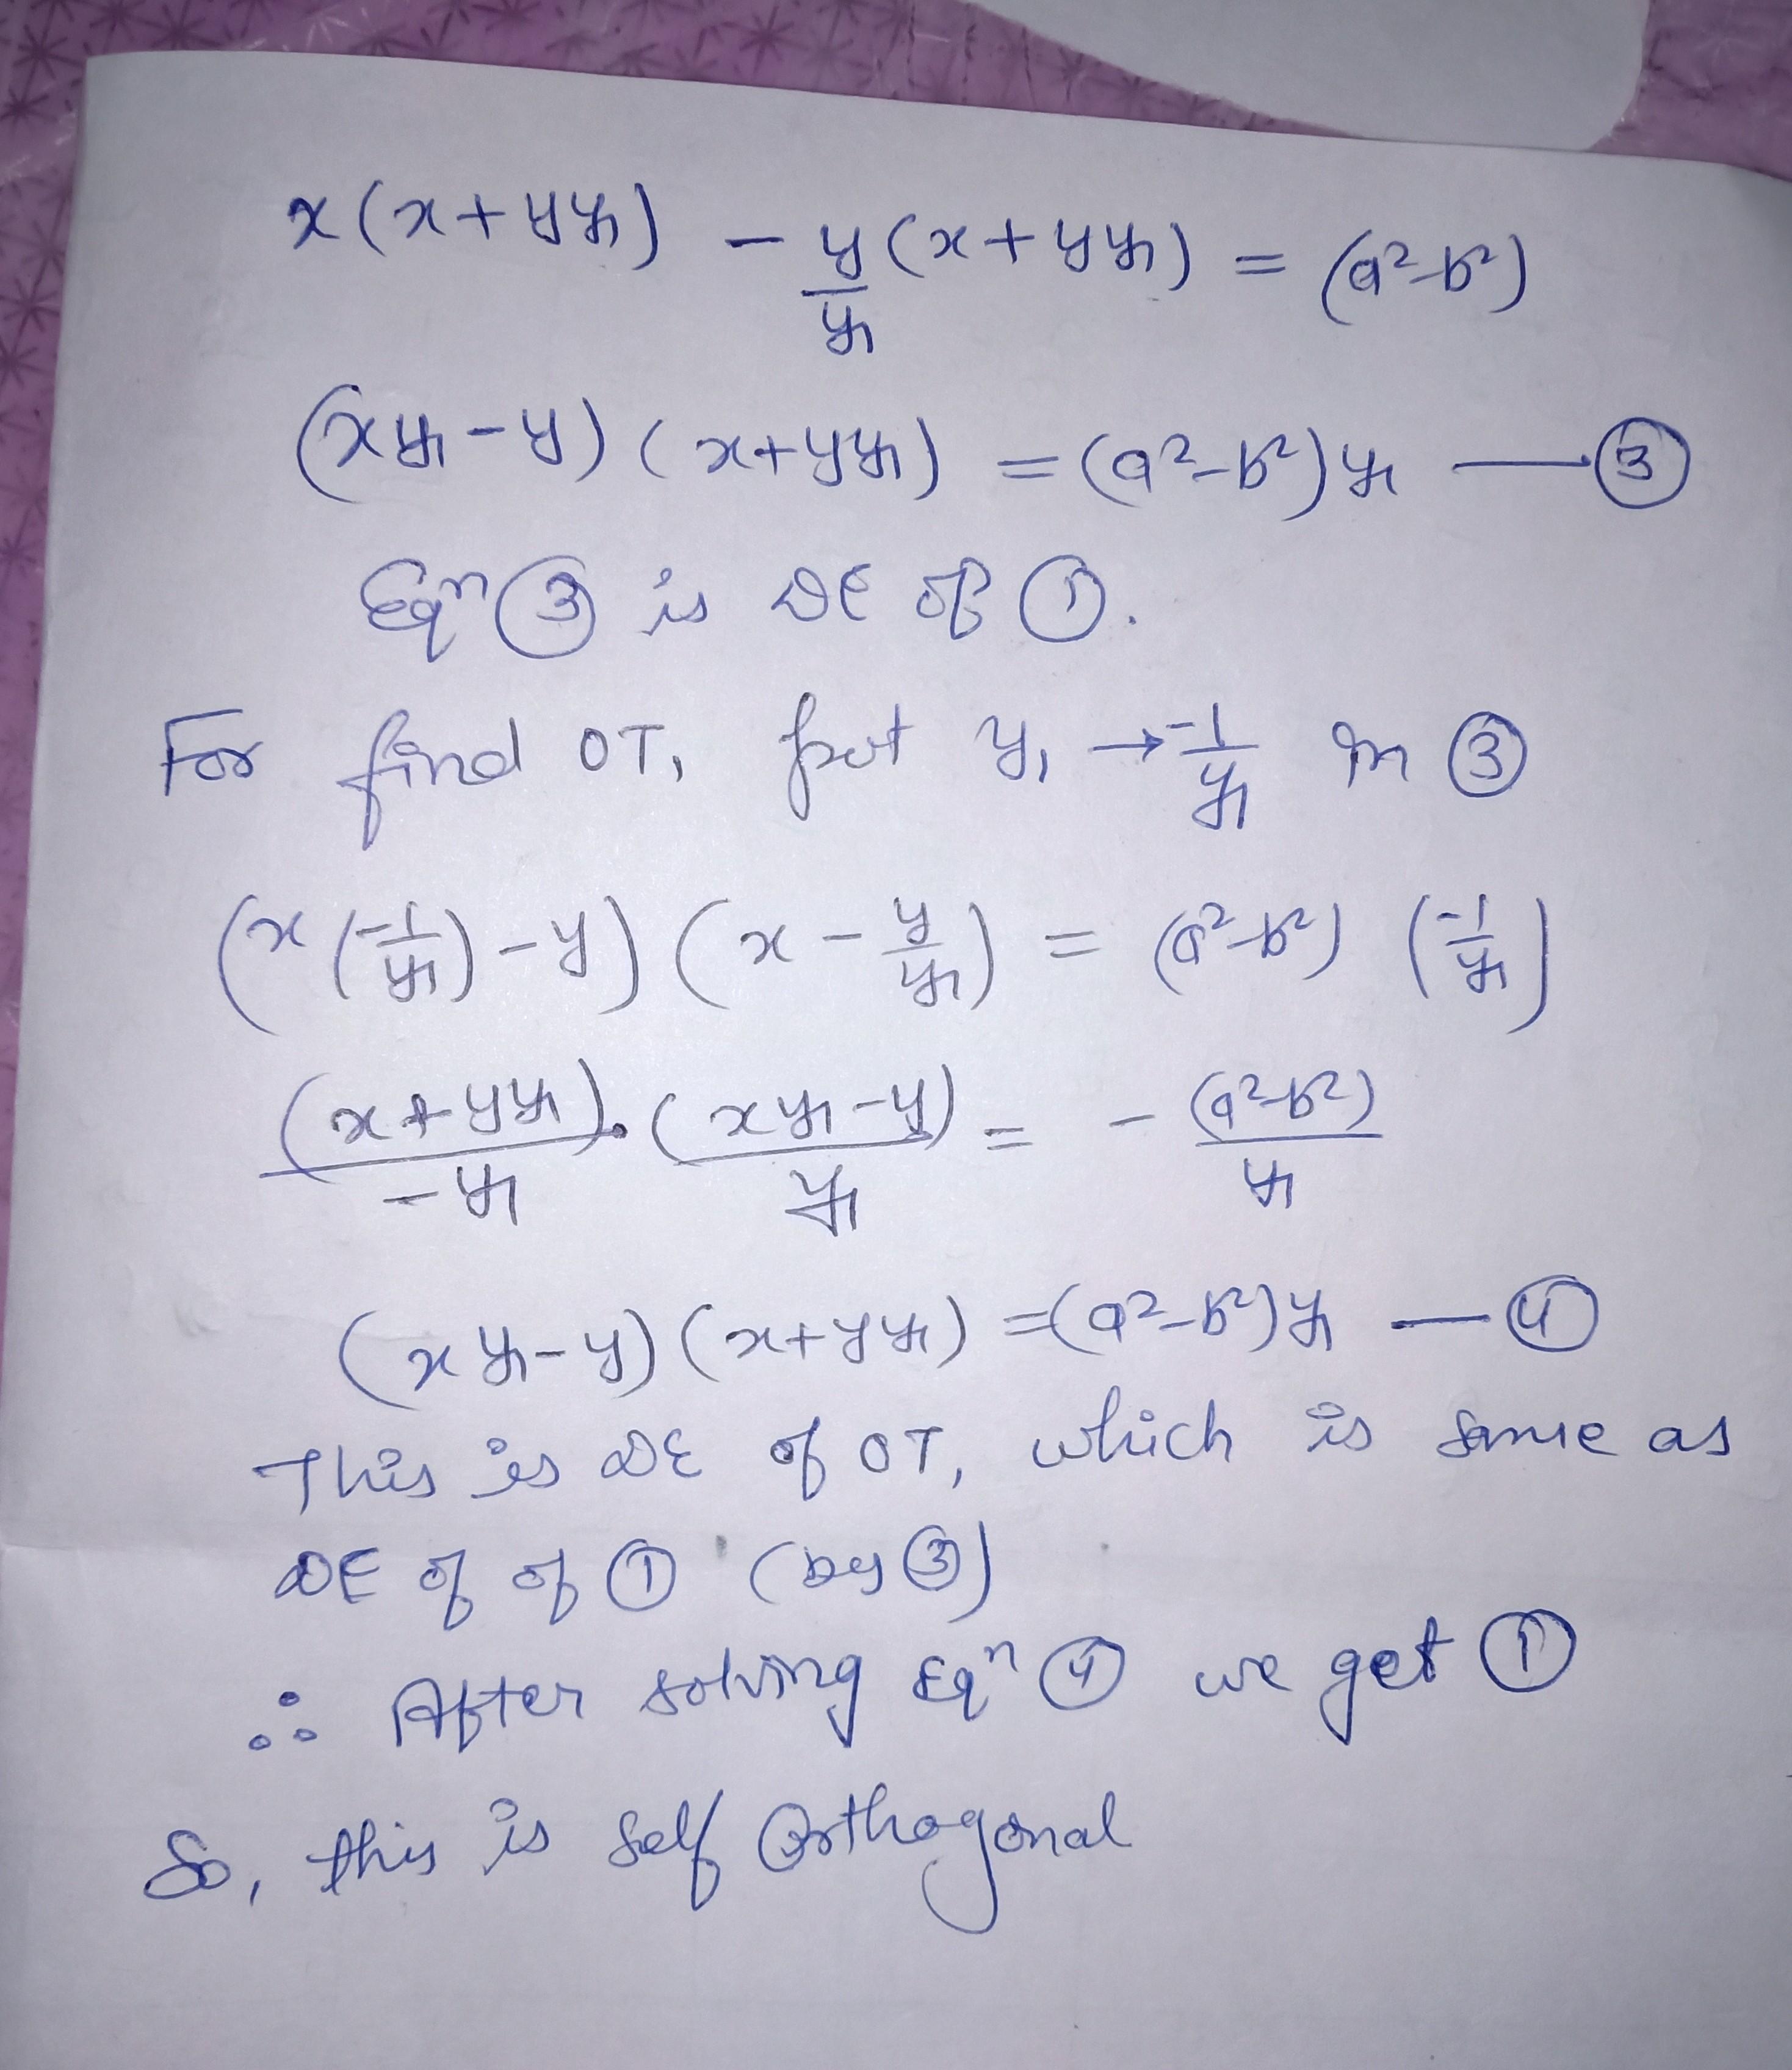 x(x+yy₁) - y/y₁ (x+yy₁) = (a²-b²)
(xy₁-y) (x+yy₁) = (a²-b²)y₁ — ③
Eqⁿ ③ is DE of ①.
For find OT, put y₁ → -1/y₁ in ③
(x(-1/y₁)-y) (x - y/y₁) = (a²-b²) (-1/y₁)
(x+yy₁)/-y₁ · (xy₁-y)/y₁ = - (a²-b²)/y₁
(xy₁-y) (x+yy₁) = (a²-b²)y₁ — ④
This is DE of OT, which is same as
DE of of ① (by ③)
∴ After solving Eqⁿ ④ we get ①
So, this is self Orthogonal